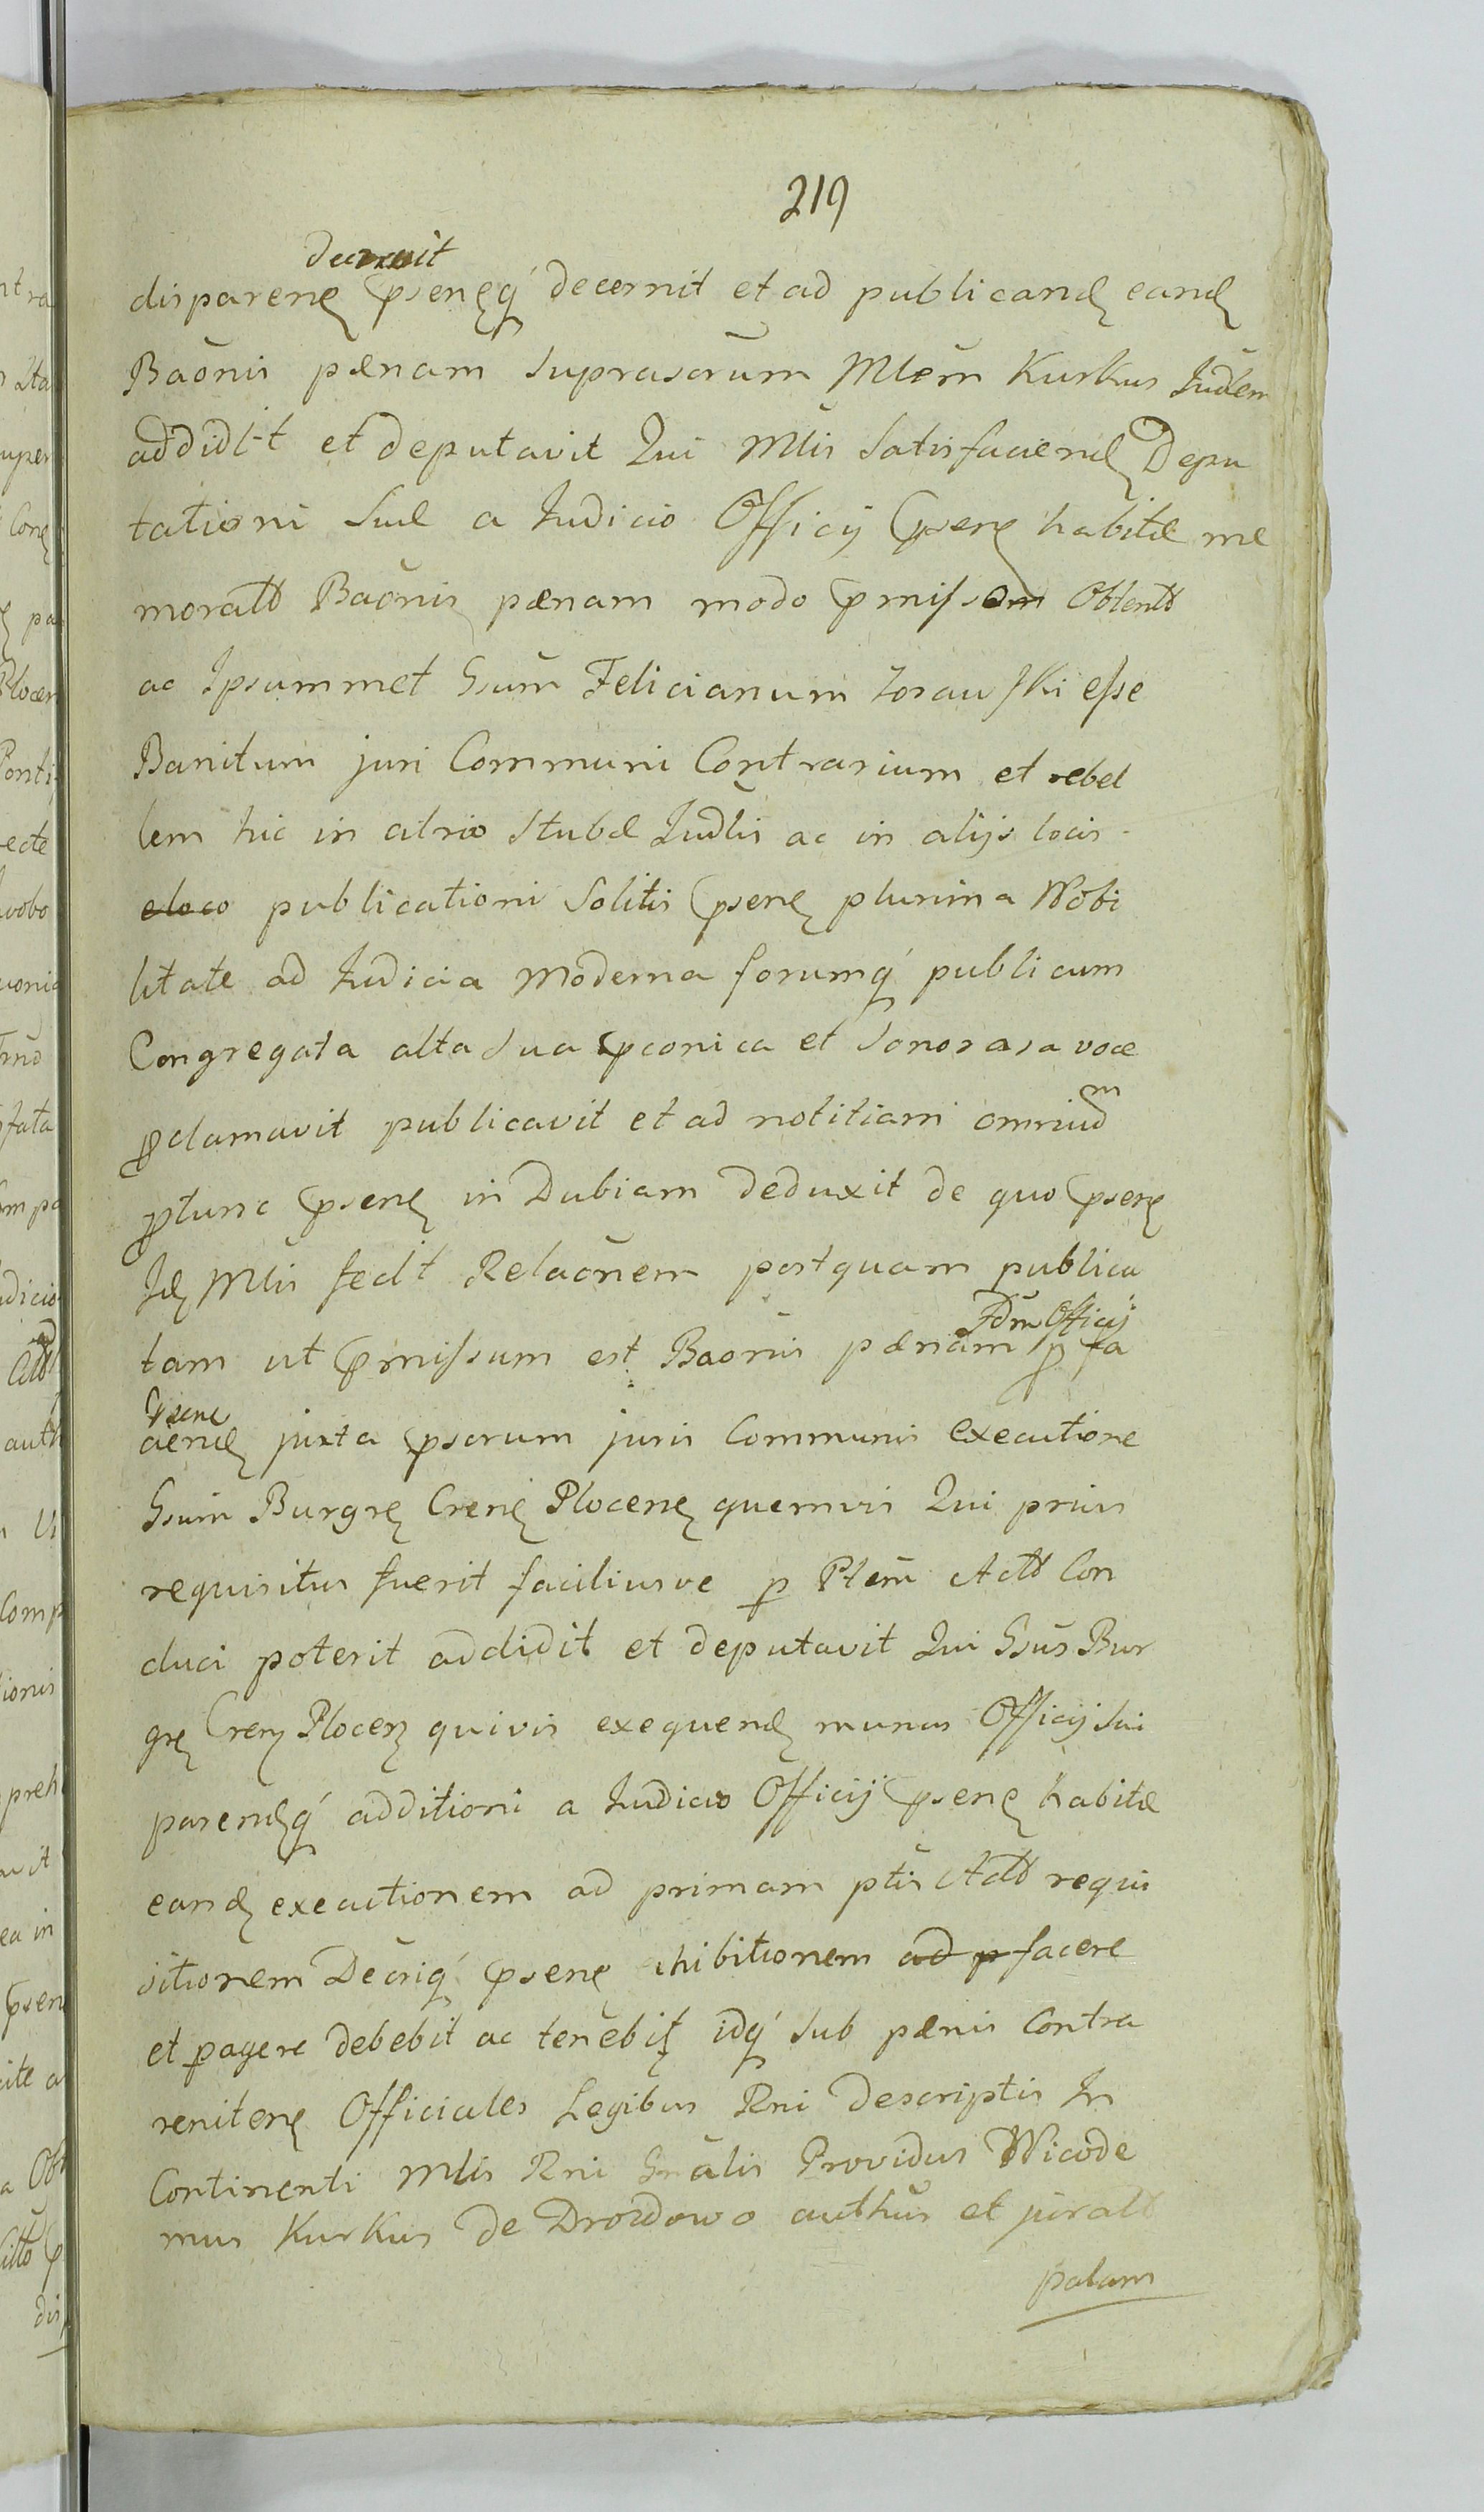 219
decrevit
disparenę psenęq́ decernit et ad publicandę eandę
Baōnis pænam suprascrum Mlēm Kurkus Judlem
addidit et deputavit Qui Mlis satisfaciendę Depu
tationi suæ a Judicio Officij psenę habitæ me
moratb Baōnis pænam modo pmissam Obtentb
ac Ipsummet Gsum̄ Felicianum Zorawski esse
Banitum juri Communi Contrarium et rebel
lem hic in atrio stubæ Judlis ac in alijs locis
eloco publicationi solitis psenę plurima Nobi
litate ad Judicia moderna forumq́ publicum
Congregata alta sua pconica et sonorasa voce
pclamavit publicavit et ad notitiam omnium
ptunc psenę in Dubiam deduxit de quo psenę
Idę Mlis fecit Relaōnem postquam publica
Idm Officij
tam ut pmissum est Baōnis pænam p fa
psenę
ciendę juxta pscrum juris Communis executione
Gsum̄ Burgrę Crenę Plocenę quemvis Qui prius
requisitus fuerit faciliusve p Ptem̄ Actb Con
duci poterit addidit et deputavit Qui Gsūs Bur
grę Crenę Plocenę quivis exequendę munus Officij sui
parendęq́ additioni a Judicio Officij psenę habitæ
eandę executionem ad primam ptis̄ Actb requi
sitionem Decrīq́ psenę ihibitionem ad p facere
et pagere debebit ac tenēbit̨ idq́ sub pænis Contra
renitenę Officiales Legibus Rni descriptis In
Continenti Mlis Rni Gnālis Providus Nicode
mus Kurkus de Drozdowo authūs et juratb
palam